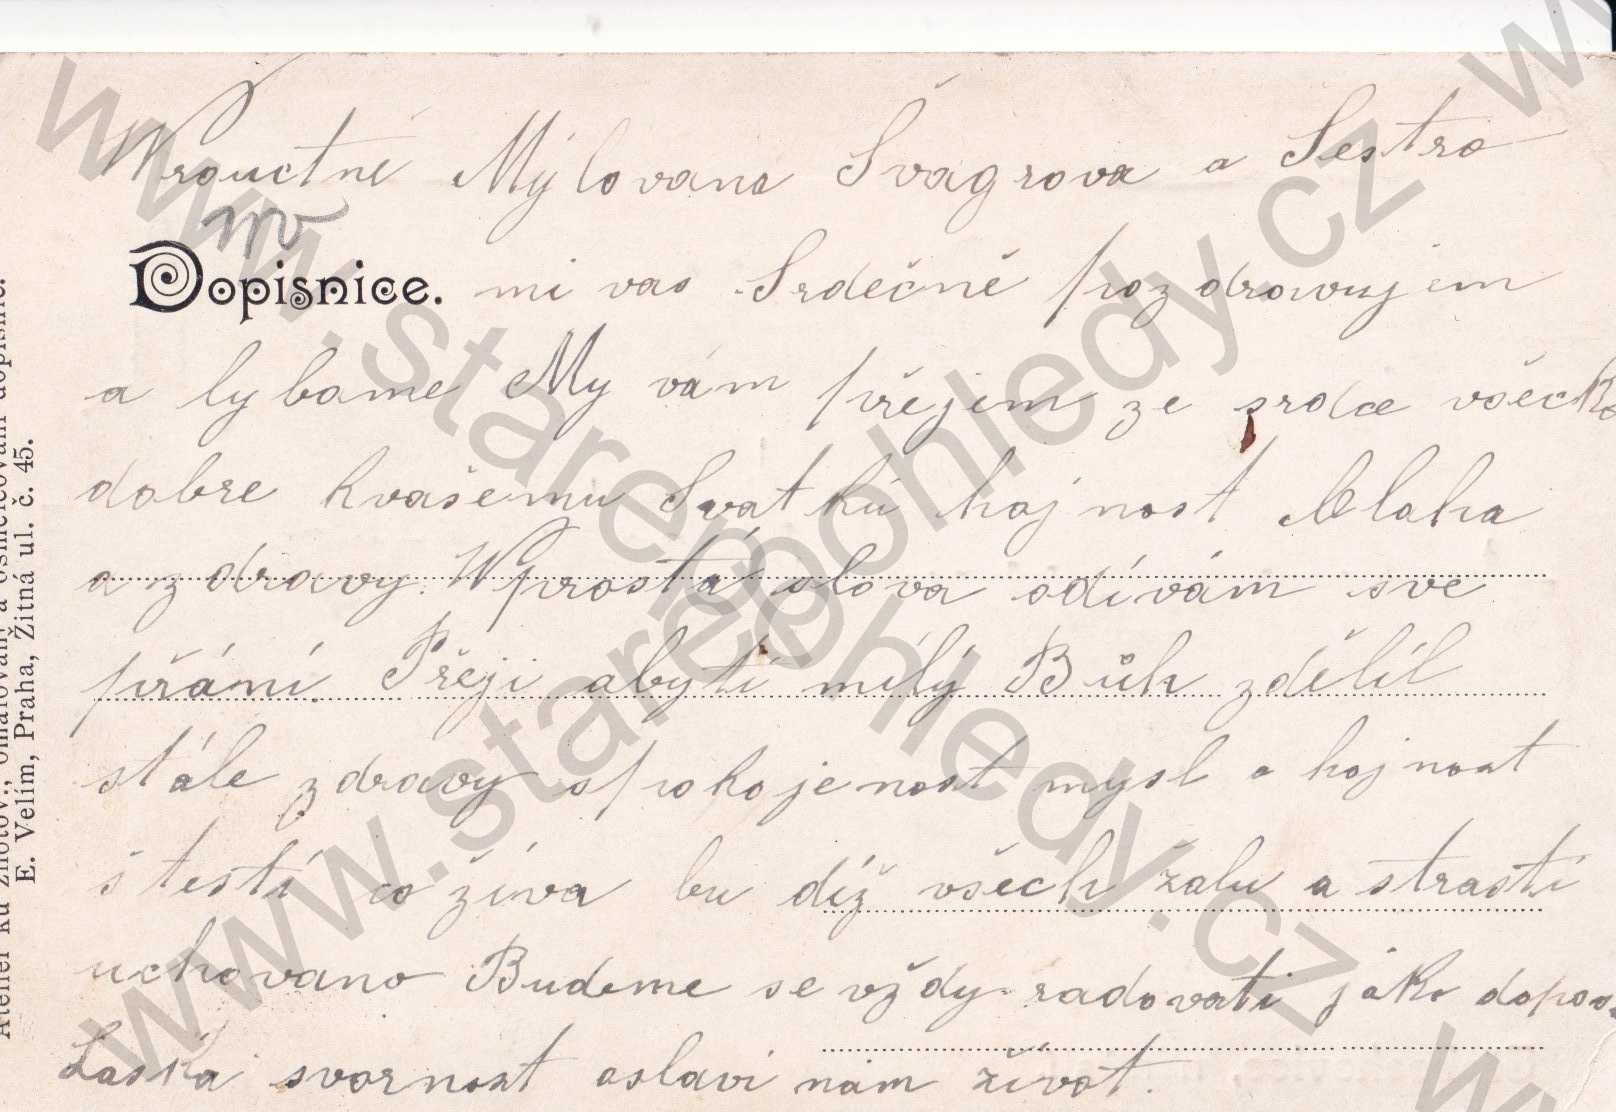 Wrouctně Mýlovana Švagrova a Sestro
Dopisnice. mi vas Srdečně pozdravujem
a lybame My vám přejem ze srdce všecko
dobre kvašemu Svatků hojnost blaha
a zdravy. Wprostá slova odívám sve
přání Přeji abyti milý Bůh zdělil
stále zdravy spokojenost mysl a hojnost
štestí co žíva bu díž všech žalu a strasti
uchovano Budeme se vždy radovati jako dopos
Laska svornost oslaví nám život.
Atelier ku zhotov., omalování a osněžování dopisnic.
E. Velím, Praha, Žitná ul. č. 45.
www.starepohledy.cz
www.starepohledy.cz